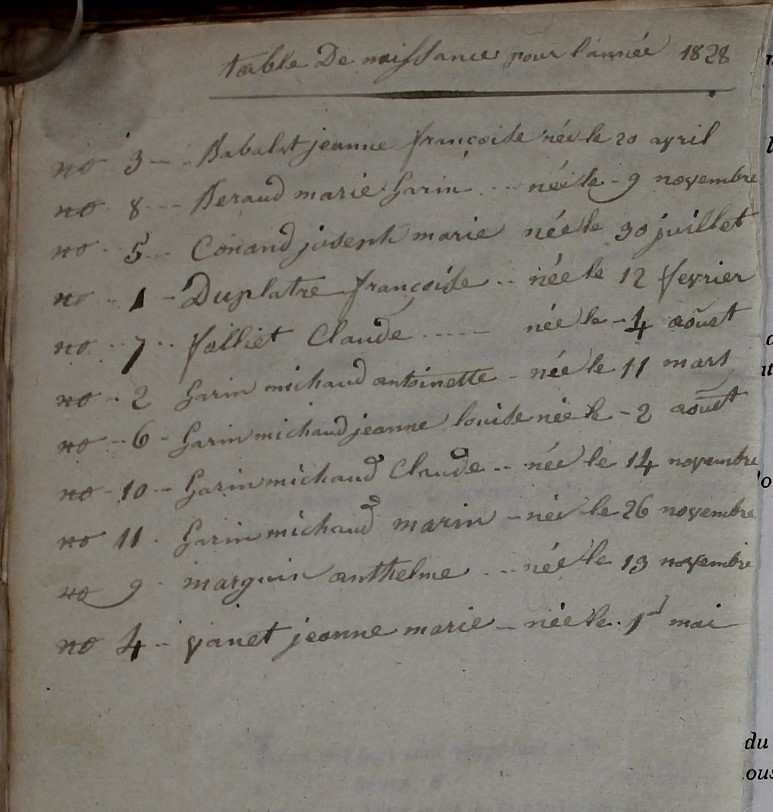 table De naissance pour l'année 1828
no 3 -- Babalet jeanne françoise née le 20 avril
no 8 --- Beraud marie Garin --- née le 9 novembre
no 5 -- Conand joseph marie née le 30 juillet
no -- 1 - Duplatre françoise -- née le 12 fevrier
no -- 7 -- folliet Claude ---- née le - 4 aoust
no -- 2 Garin michaud antoinette - née le 11 mars
no -- 6 - Garin michaud jeanne louise née le - 2 aoust
no - 10 -- Garin michaud Claude -- née le 14 novembre
no 11 - Garin michaud marin - née le 26 novembre
no 9 - marguin anthelme -- née le 13 novembre
no 4 -- yanet jeanne marie - née le 1er mai
du